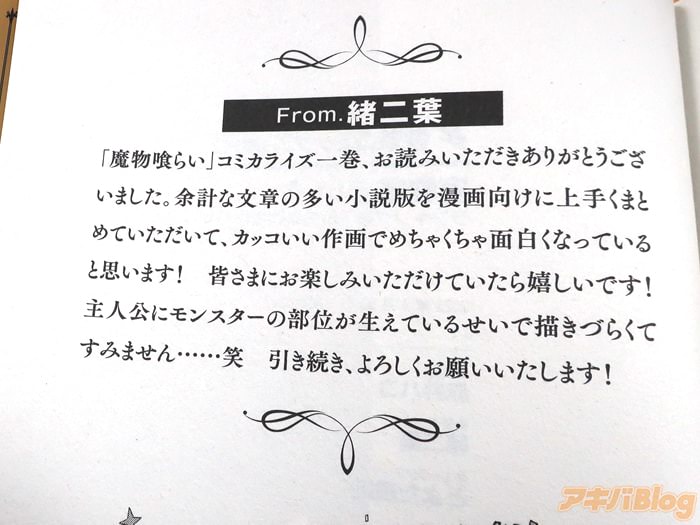 From.緒二葉
「魔物喰らい」コミカライズ一巻、お読みいただきありがとうござ
いました。余計な文章の多い小説版を漫画向けに上手くまと
めていただいて、カッコいい作画でめちゃくちゃ面白くなっている
と思います!　皆さまにお楽しみいただけていたら嬉しいです!
主人公にモンスターの部位が生えているせいで描きづらくて
すみません……笑　引き続き、よろしくお願いいたします!
アキバBlog